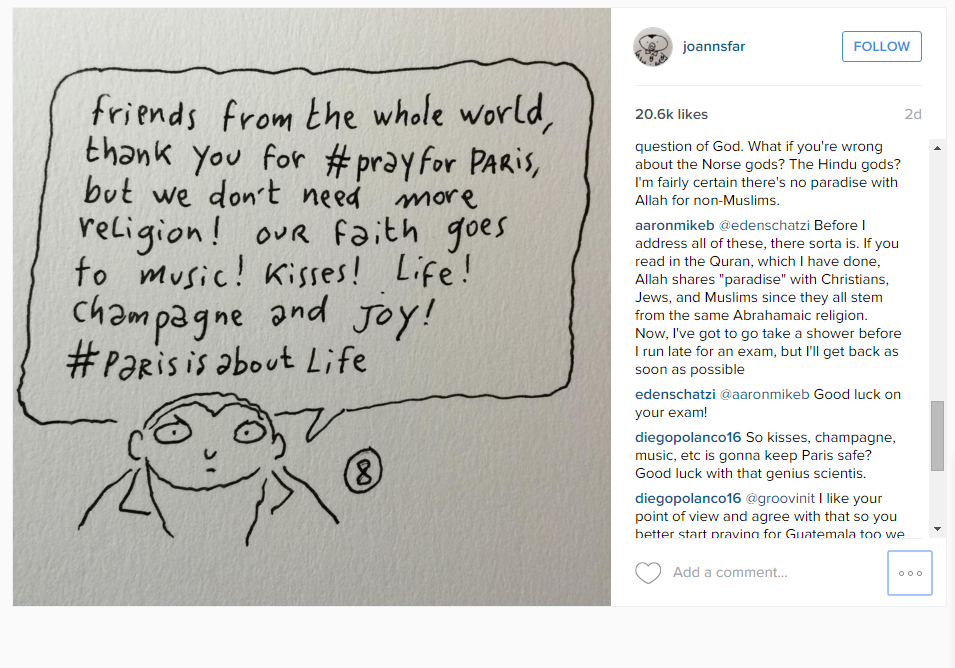 friends from the whole world,
thank you for #prayforPARis,
but we don't need more
religion! our faith goes
to music! Kisses! Life!
champagne and Joy!
#Parisisabout Life
8
joannsfar
FOLLOW
20.6k likes
2d
question of God. What if you're wrong
about the Norse gods? The Hindu gods?
I'm fairly certain there's no paradise with
Allah for non-Muslims.
aaronmikeb @edenschatzi Before I
address all of these, there sorta is. If you
read in the Quran, which I have done,
Allah shares "paradise" with Christians,
Jews, and Muslims since they all stem
from the same Abrahamaic religion.
Now, I've got to go take a shower before
I run late for an exam, but I'll get back as
soon as possible
edenschatzi @aaronmikeb Good luck on
your exam!
diegopolanco16 So kisses, champagne,
music, etc is gonna keep Paris safe?
Good luck with that genius scientis.
diegopolanco16 @groovinit I like your
point of view and agree with that so you
better start praying for Guatemala too we
Add a comment...